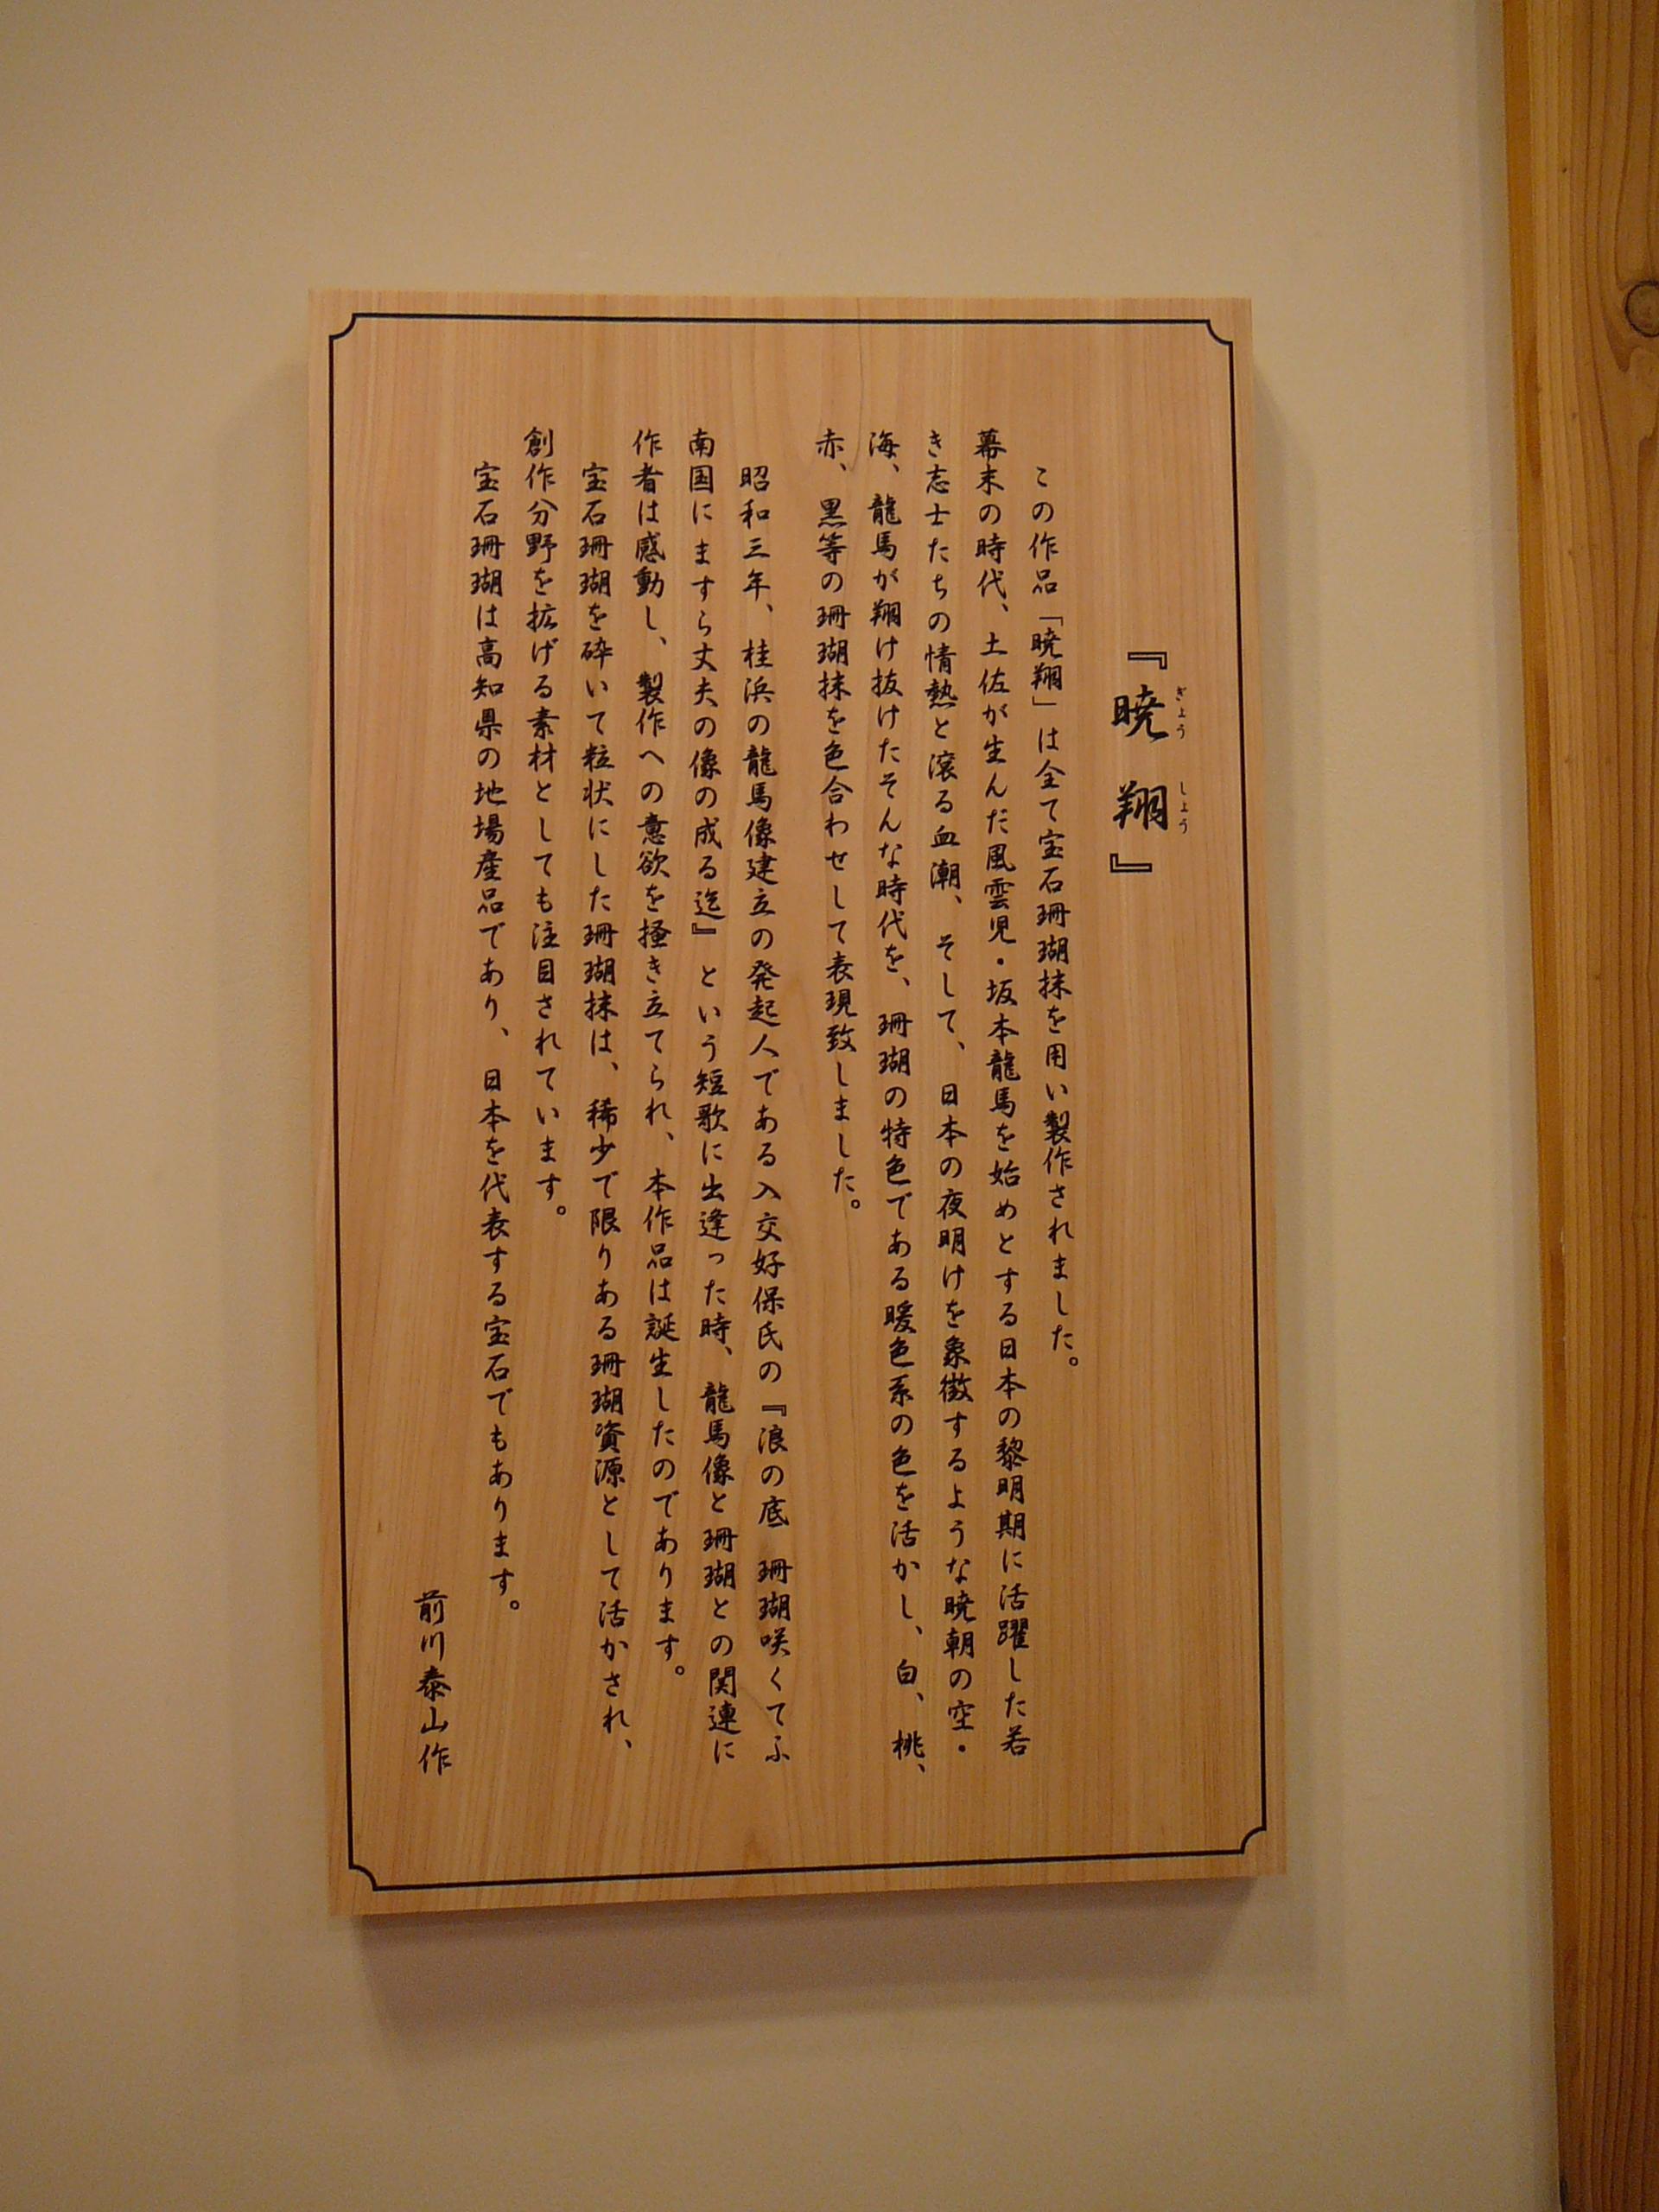 『暁翔』
ぎょう しょう
この作品「暁翔」は全て宝石珊瑚抹を用い製作されました。
幕末の時代、土佐が生んだ風雲児・坂本龍馬を始めとする日本の黎明期に活躍した若
き志士たちの情熱と滾る血潮、そして、日本の夜明けを象徴するような暁朝の空・
海、龍馬が翔け抜けたそんな時代を、珊瑚の特色である暖色系の色を活かし、白、桃、
赤、黒等の珊瑚抹を色合わせして表現致しました。
昭和三年、桂浜の龍馬像建立の発起人である入交好保氏の『浪の底 珊瑚咲くてふ
南国にますら丈夫の像の成る迄』という短歌に出逢った時、龍馬像と珊瑚との関連に
作者は感動し、製作への意欲を掻き立てられ、本作品は誕生したのであります。
宝石珊瑚を砕いて粒状にした珊瑚抹は、稀少で限りある珊瑚資源として活かされ、
創作分野を拡げる素材としても注目されています。
宝石珊瑚は高知県の地場産品であり、日本を代表する宝石でもあります。
前川泰山作